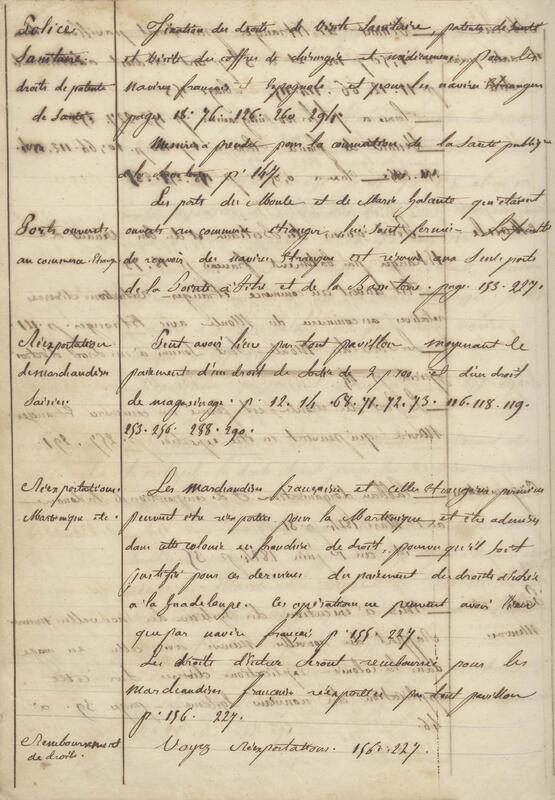 Police
Sanitaire
droits de patente
de Santé
Fixation des droits de Visite Sanitaire, patente de Santé
et Visite des coffres de chirurgie et médicamens pour les
navires français et Espagnols et pour les navires Etrangers
page 18. 76. 126. 260. 291.
Mesures à prendre pour la conservation de la Santé publique
p. 147
Ports ouverts
au commerce Etrang.
Les ports du Moule et de Marie Galante qui étaient
ouverts au commerce étranger, lui sont fermés
de recevoir des navires Etrangers est réservé aux seuls ports
de la Pointe à Pitre et de la Basseterre. page. 153. 227.
Réexportation
de marchandises
Saisies.
Peut avoir lieu par tout pavillon moyennant le
paiement d'un droit de Sortie de 2 p 100 et d'un droit
de magasinage. p. 12. 14. 68. 71. 72. 73. 116. 118. 119.
253. 256. 288. 290.
Réexportations
Martinique etc.
Les marchandises françaises et celles étrangères permises
peuvent être réexportées pour la Martinique et être admises
dans cette colonie en franchise de droit, pourvu qu'il soit
justifié pour ces dernières du paiement des droits d'entrée
à la Guadeloupe. Ces opérations ne peuvent avoir lieu
que par navire français p. 155. 227.
Les droits d'entrée seront remboursés pour les
marchandises françaises réexportées par tout pavillon
p. 156. 227.
Remboursement
de droits.
Voyez Réexportations. 156. 227.